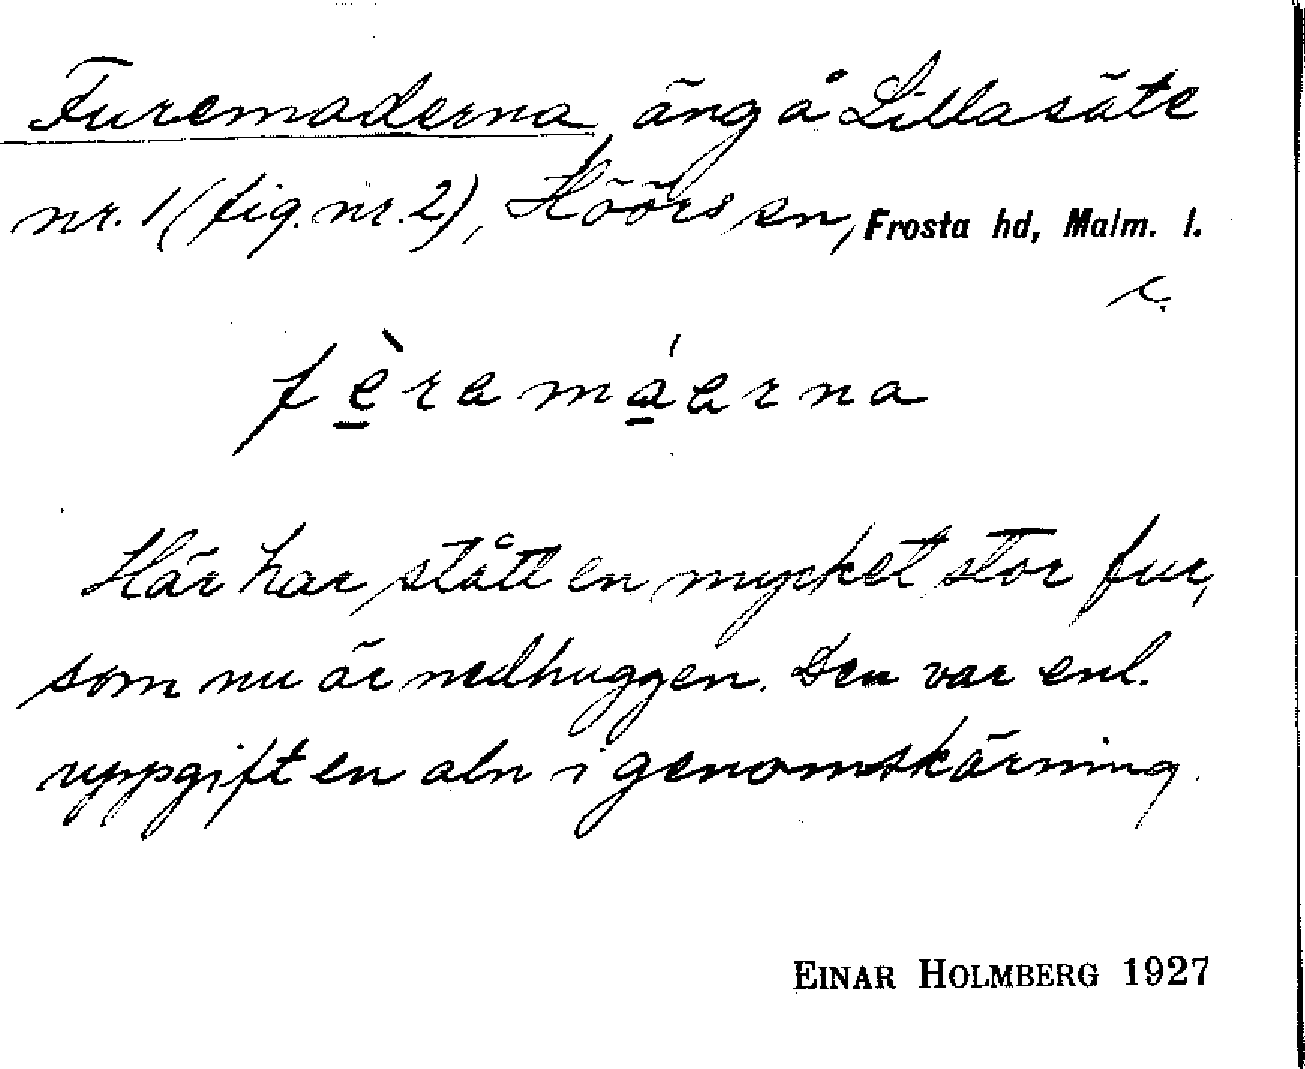 Furemaderna, äng å Lillasäte
nr. 1 (fig. nr. 2), Höörs sn, Frosta hd, Malm. l.
fèramáerna
Här har stått en mycket stor fur,
som nu är nedhuggen. Den var enl.
uppgift en aln i genomskärning.
EINAR HOLMBERG 1927